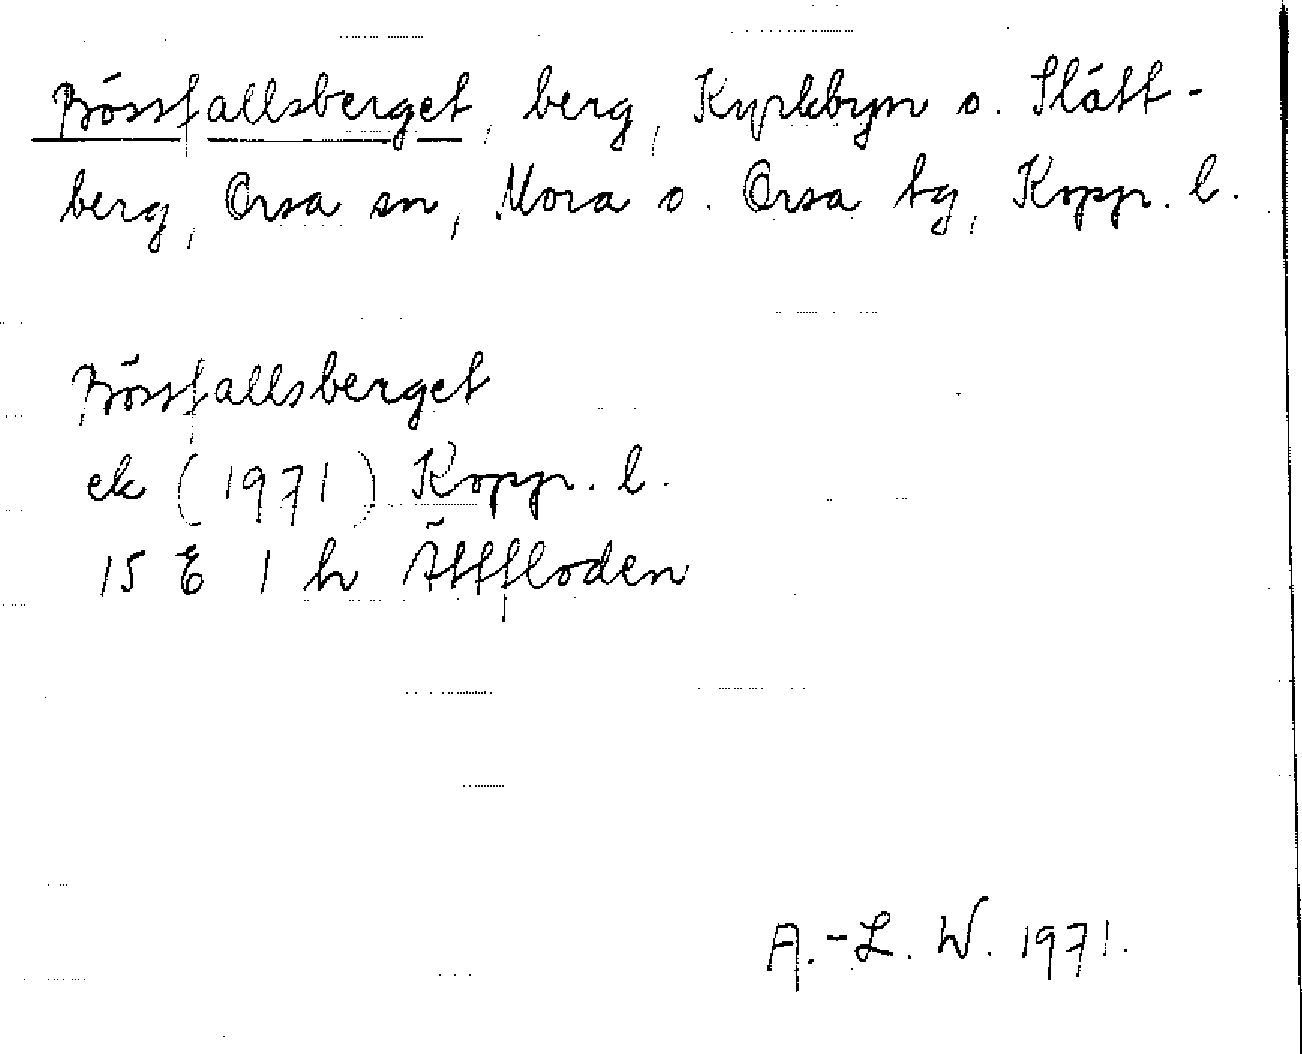 Bössfallsberget, berg, Kyrkbyn o. Slätt-
berg, Orsa sn, Mora o. Orsa tg, Kopp. l.
Bössfallsberget
ek (1971) Kopp. l.
15 E 1 h Ättfloden
A.-L. W. 1971.